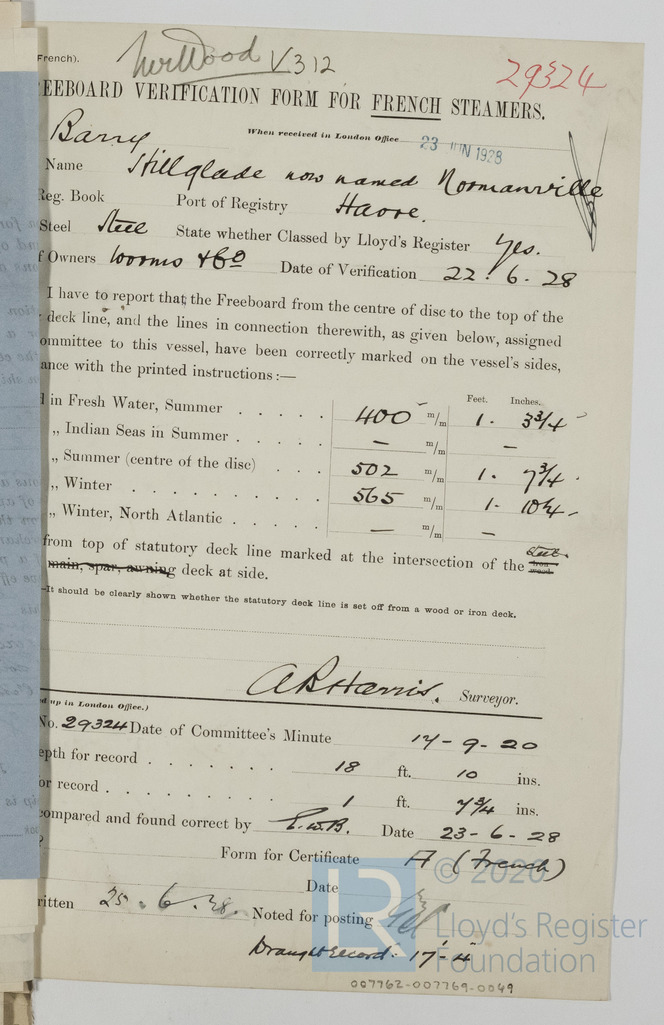 French).
V312
29324
REEBOARD VERIFICATION FORM FOR FRENCH STEAMERS.
Barry
When received in London Office 23 JUN 1928
Name Stillglade now named Normanville
Reg. Book Port of Registry Havre.
Steel Steel State whether Classed by Lloyd's Register Yes.
f Owners Worms & Co Date of Verification 22. 6. 28
I have to report that the Freeboard from the centre of disc to the top of the
deck line, and the lines in connection therewith, as given below, assigned
ommittee to this vessel, have been correctly marked on the vessel's sides,
ance with the printed instructions :—
Feet. Inches.
in Fresh Water, Summer . . . . . 400 m/m 1. 3¾
„ Indian Seas in Summer . . . . . — m/m —
„ Summer (centre of the disc) . . . 502 m/m 1. 7¾
„ Winter . . . . . . . . . . 565 m/m 1. 10¼
„ Winter, North Atlantic . . . . . — m/m —
from top of statutory deck line marked at the intersection of the iron wood
main, spar, awning deck at side.
—It should be clearly shown whether the statutory deck line is set off from a wood or iron deck.
A R Harris. Surveyor.
d up in London Office.)
No. 29324 Date of Committee's Minute 17-9-20
epth for record . . . . . . . 18 ft. 10 ins.
or record . . . . . . . . . 1 ft. 7¾ ins.
compared and found correct by E.W.B. Date 23-6-28
Form for Certificate A (French)
Date
ritten 25.6.28. Noted for posting
Draught record: 17'-4"
© 2020
Lloyd's Register
Foundation
LR
007762-007769-0049